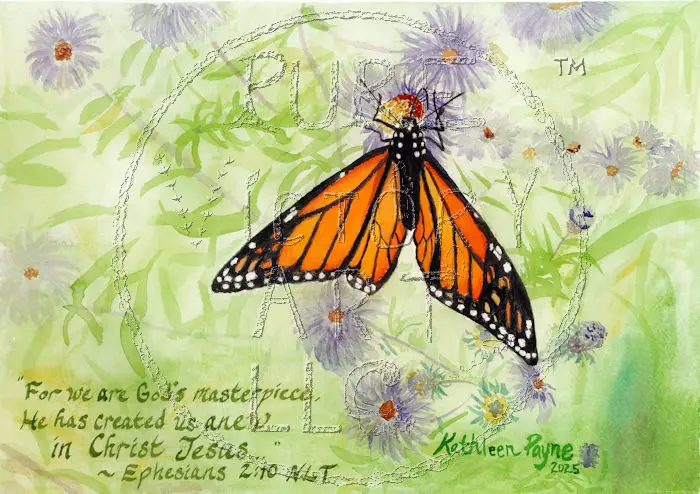 PURE
TM
VICTORY
ART
LLC
"For we are God's masterpiece.
He has created us anew
in Christ Jesus..."
~ Ephesians 2:10 NLT
Kathleen Payne
2025